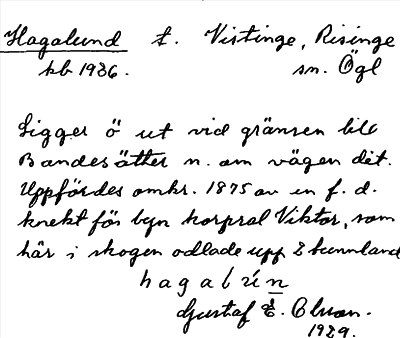 Hagalund t. Vistinge, Risinge
kb 1936. sn. Ögl
Ligger ö ut vid gränsen till
Bandesätter n. om vägen dit.
Uppfördes omkr. 1875 av en f. d.
knekt för byn korpral Viktor, som
här i skogen odlade upp 2 tunnland
hagalún
Gustaf E. Olsson.
1929.